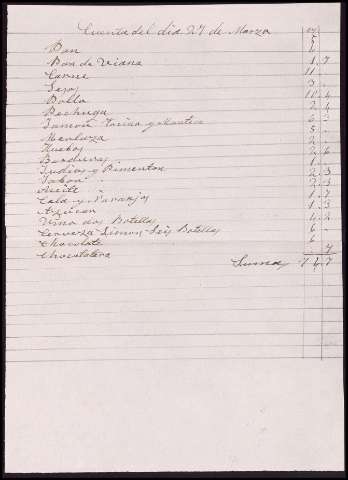 Cuenta del dia 27 de Marzo
Pan
Pan de Viana 1 7
Carne 11
Sesos 3
Pollo 10 4
Pechuga 2 4
Jamon Tocino y Manteca 6
Merluza 5
Huebos 2
Berduras 2 6
Judias y Pimenton 1
Jabon 2 3
Aceite 2 3
Cala y Naranjas 1 7
Azucar 1 3
Vino dos Botellas 4 2
Cerveza Limon Seis Botellas 6
Chocolate 6
Chocolatera 4
Suma 7 4 7